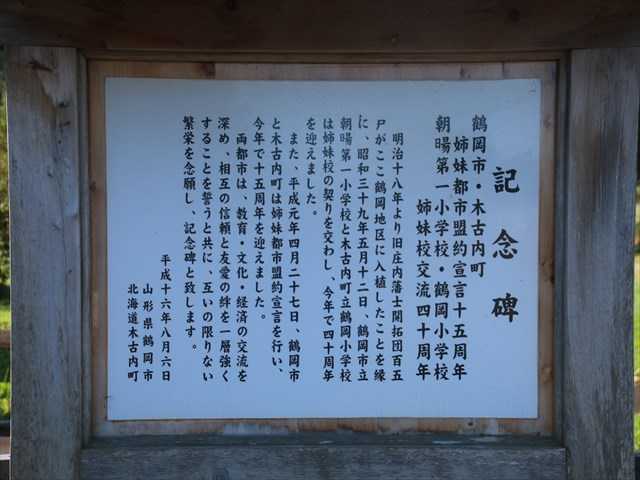 記念碑
鶴岡市・木古内町
姉妹都市盟約宣言十五周年
朝暘第一小学校・鶴岡小学校
姉妹校交流四十周年
明治十八年より旧庄内藩士開拓団百五
戸がここ鶴岡地区に入植したことを縁
に、昭和三十九年五月十二日、鶴岡市立
朝暘第一小学校と木古内町立鶴岡小学校
は姉妹校の契りを交わし、今年で四十周年
を迎えました。
また、平成元年四月二十七日、鶴岡市
と木古内町は姉妹都市盟約宣言を行い、
今年で十五周年を迎えました。
両都市は、教育・文化・経済の交流を
深め、相互の信頼と友愛の絆を一層強く
することを誓うと共に、互いの限りない
繁栄を念願し、記念碑と致します。
平成十六年八月六日
山形県鶴岡市
北海道木古内町